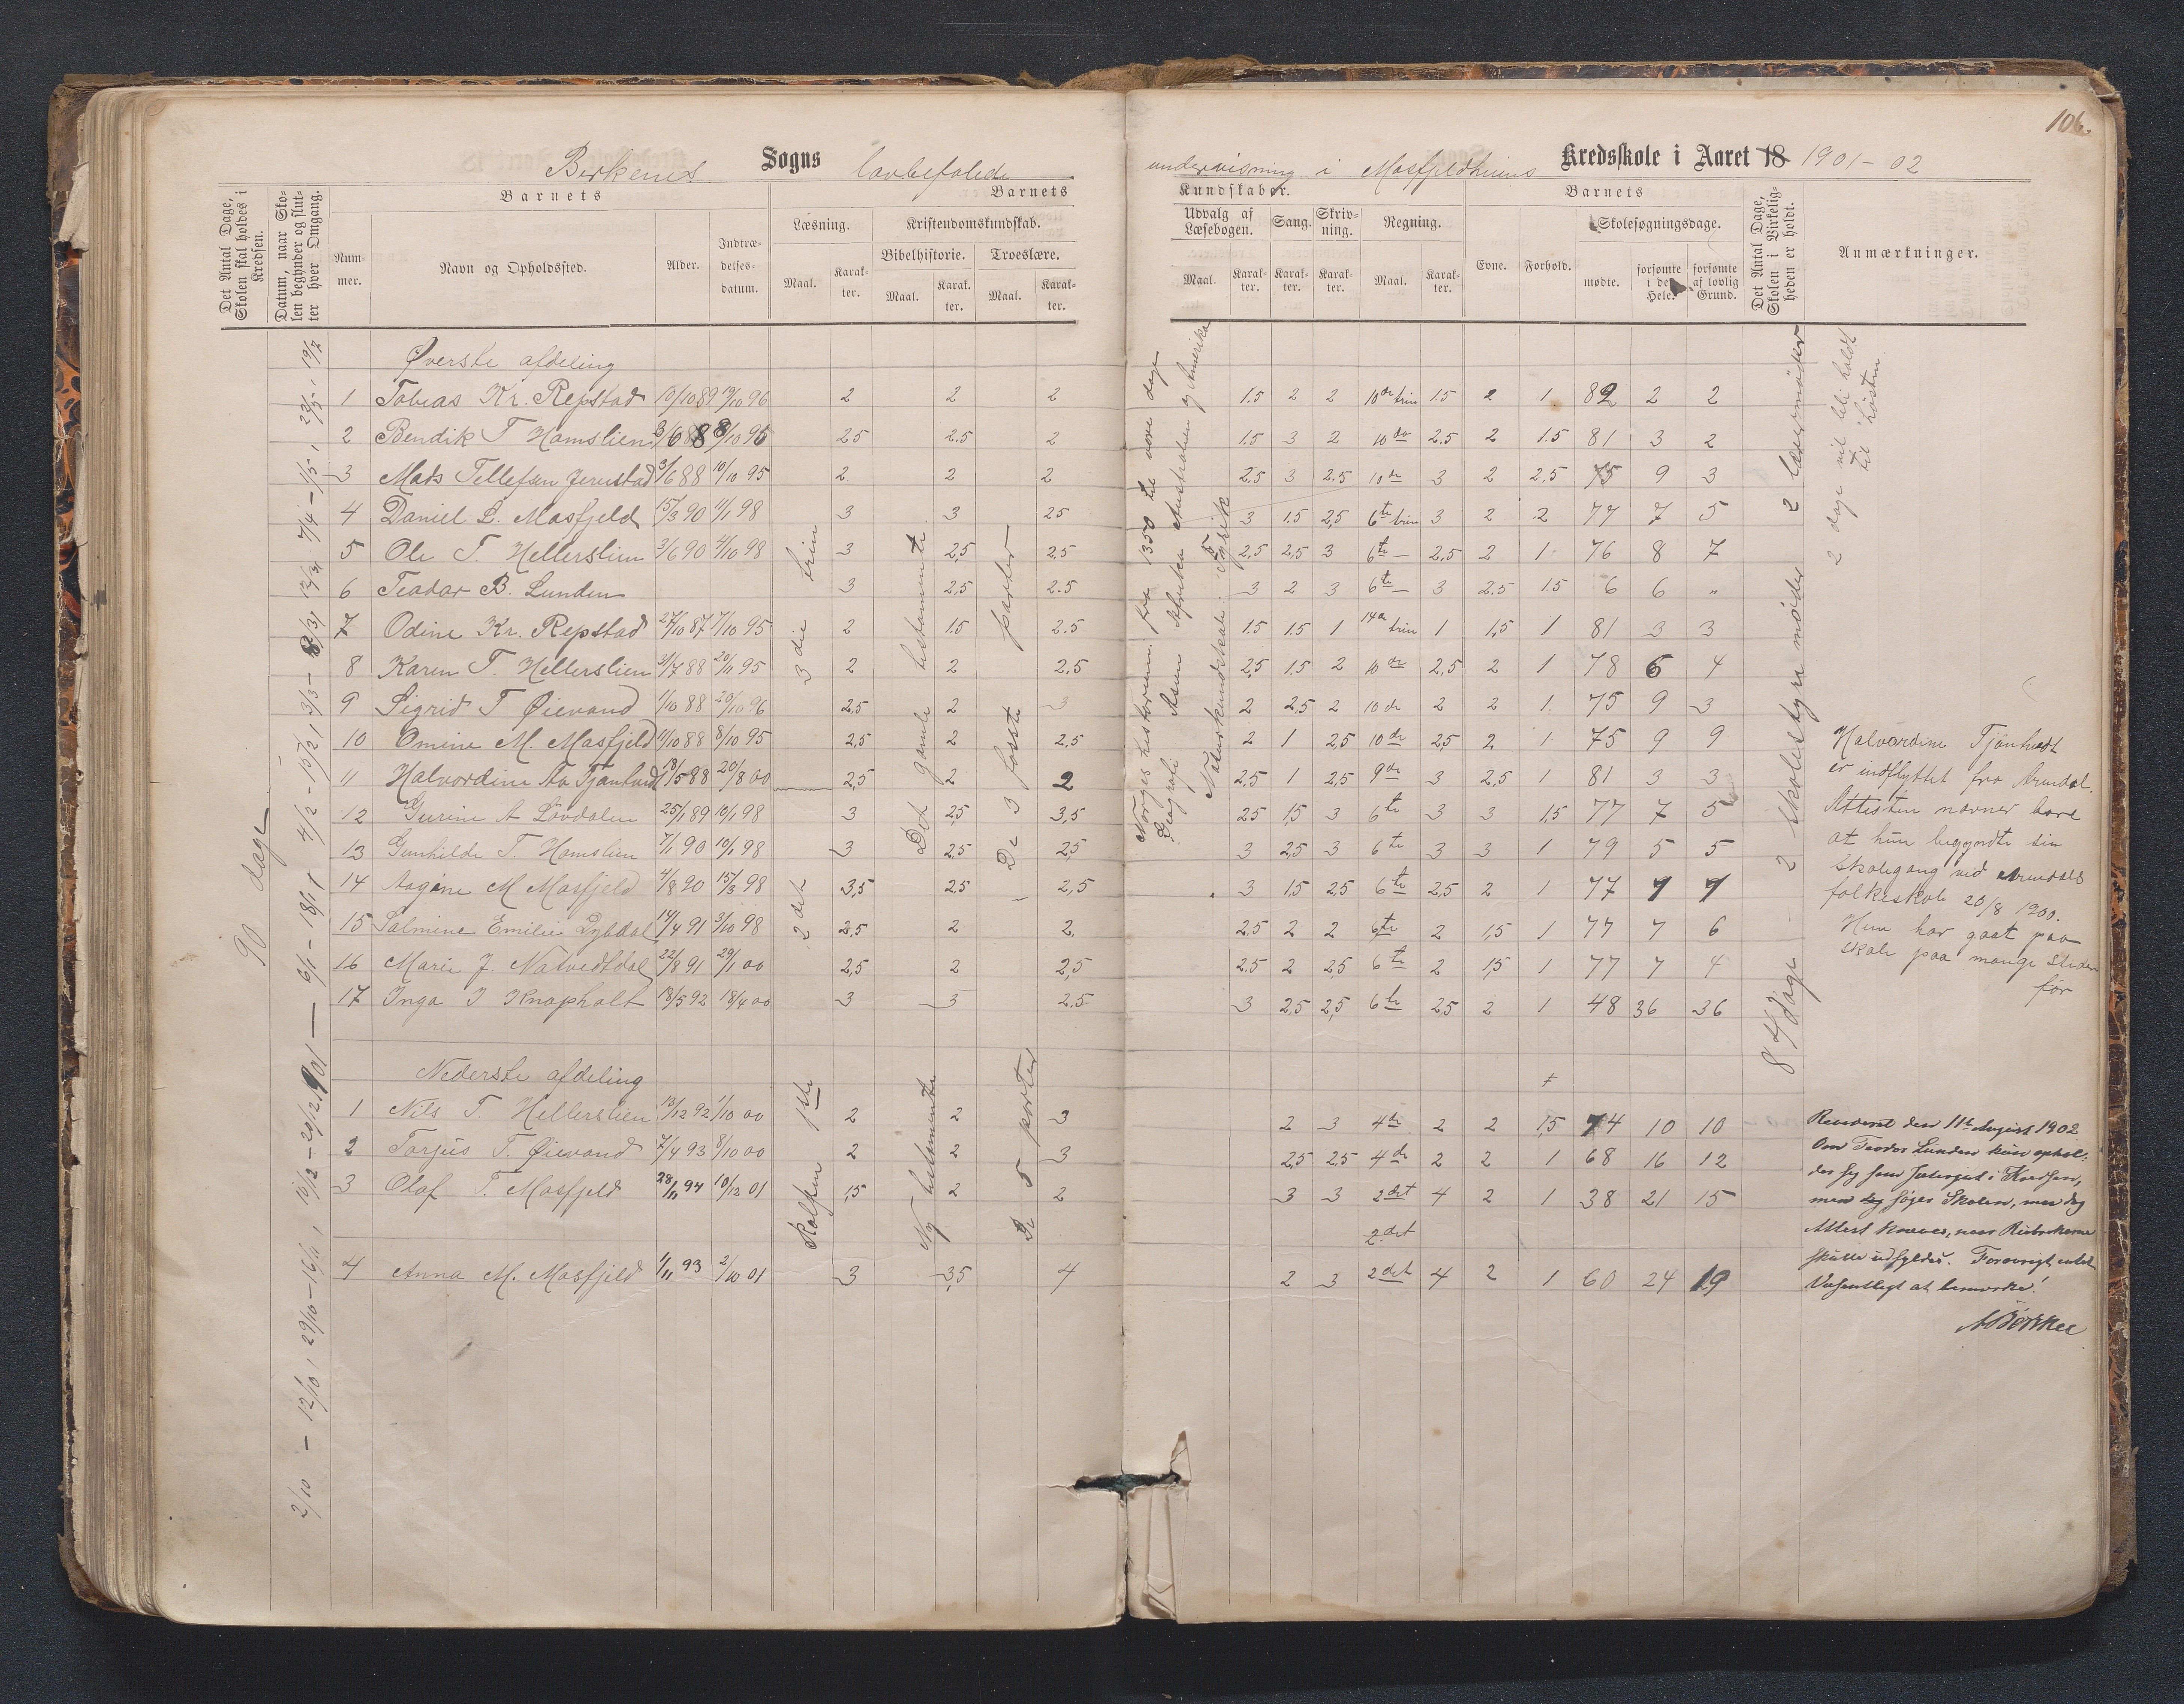 106.
Birkenes Sogns lovbefalede undervisning i Mosfjeldheiens Kredsskole i Aaret 18 1901-02
Det Antal Dage, Skolen skal holdes i Kredsen.
Datum, naar Skolen begynder og slutter hver Omgang.
Barnets
Nummer.
Navn og Opholdssted.
Alder.
Indtrædelsesdatum.
Barnets
Læsning.
Maal.
Karakter.
Kristendomskundskab.
Bibelhistorie.
Maal.
Karakter.
Troeslære.
Maal.
Karakter.
Kundskaber.
Udvalg af Læsebogen.
Maal.
Karakter.
Sang.
Karakter.
Skrivning.
Karakter.
Regning.
Maal.
Karakter.
Barnets
Evne.
Forhold.
Skolesøgningsdage.
mødte.
forsømte i det Hele.
forsømte af lovlig Grund.
Det Antal Dage, Skolen i Virkeligheden er holdt.
Anmærkninger.
90 dage
2/10 - 12/10, 29/10-16/11, 10/12-20/12 1901 - 6/1 - 18/1 4/2 - 15/2, 3/3 - 8/3 13/3 7/4 - 1/5, 23/5, 19/7
Øverste afdeling
1 Tobias Kr. Repstad 10/10 89 19/10 96 2 2 2 1.5 2 2 10de trin 1.5 2 1 82 2 2
2 Bendik T Hamslien 3/6 88 8/10 95 2.5 2.5 2 1.5 3 2 10do 2.5 2 1.5 81 3 2
3 Mads Tellefsen Jerustad 3/6 88 10/10 95 2 2 2 2.5 3 2.5 10de 3 2 2.5 75 9 3
4 Daniel L. Mosfjeld 15/3 90 11/1 98 3 3 2.5 3 1.5 2.5 6te trin 3 2 2 77 7 5
5 Ole T. Hellerslien 3/6 90 4/10 98 3 2.5 2.5 2.5 2.5 3 6te - 2.5 2 1 76 8 7
6 Teodor B. Lunden 3 2.5 2.5 3 2 3 6te - 3 2.5 1.5 6 6 "
7 Odine Kr. Repstad 27/10 87 7/10 95 2 1.5 2.5 1.5 1.5 1 14de trin 1 1.5 1 81 3 3
8 Karen T. Hellerslien 3/7 88 20/11 95 2 2 2.5 2.5 1.5 2 10de 2.5 2 1 78 6 4
9 Sigrid T Øievand 1/10 88 20/10 96 2.5 2 3 2 2.5 2 10de 2 2 1. 75 9 3
10 Omine M. Mosfjeld 11/10 88 8/10 95 2.5 2 2.5 2 1 2.5 10de 2.5 2 1 75 9 9
11 Halvordine Aa Tjøntvedt 18/5 88 20/8 00 2.5 2 2 2.5 1 2.5 9de 3 2.5 1 81 3 3
12 Gurine A Løvdalen 25/1 89 10/1 98 3 2.5 3.5 2.5 1.5 3 6te 3 3 1.5 77 7 5
13 Gunhilde T. Hamslien 7/1 90 10/1 98 3 2.5 2.5 3 2.5 3 6te 3 3 1 79 5 5
14 Aagine M Mosfjeld 4/8 90 15/3 98 3.5 2.5 2.5 3 1.5 2.5 6te 2.5 2 1 77 7 7
15 Salmine Emilie Dybdal 14/4 91 3/10 98 2.5 2 2. 2.5 2 2 6te 2 1.5 1 77 7 6
16 Marie J. Natvedtdal 22/8 91 29/1 00 2.5 2 2.5 2.5 2 2.5 6te 2 1.5 1 77 7 4
17 Inga J Knapholt 18/5 92 18/4 00 3 3 2.5 3 2.5 2.5 6te 2.5 2 1 48 36 36
3die trin
2det
Det gamle testamente
De 3 første parter
Norgeshistorien: fra 1350 til vore dage
Geografi: Asien Afrika Australien og Amerika
Naturkundskab: Fysik
84 dage - 2 skolestyremøder 2 lærermøder
2 dage vil bli holdt til høsten
Halvordine Tjøntvedt
er indflyttet fra Arendal.
Attesten nævner bare
at hun begyndte sin
skolegang ved Arendals
folkeskole 20/8 1900.
Hun har gaat paa
skole paa mange steder
før
Nederste afdeling
1 Nils T. Hellerslien 13/12 92 1/10 00 2 2 3 2 3 4de 2 2 1.5 74 10 10
2 Torjus T. Øievand 7/4 93 8/10 00 2 2 3 2.5 2.5 4de 2 2 1 68 16 12
3 Olaf T. Mosfjeld 28/11 94 10/12 01 1.5 2 2 3 3 2det 4 2 1 38 21 15
2det
4 Anna M. Mosfjeld 1/11 93 2/10 01 3 3.5 4 2 3 2det 4 2 1 60 24 19
Rolfsen 1ste
Ny testamente
De 5 parter
Revideret den 11te August 1902
Om Teodor Lunden kun ophol-
der sig som i Kredsen,
men dog søger Skolen, maa dog
Attest kræves, naar Rubrikerne
skulle udfyldes. Forøvrigt intet
Væsentligt at bemærke!